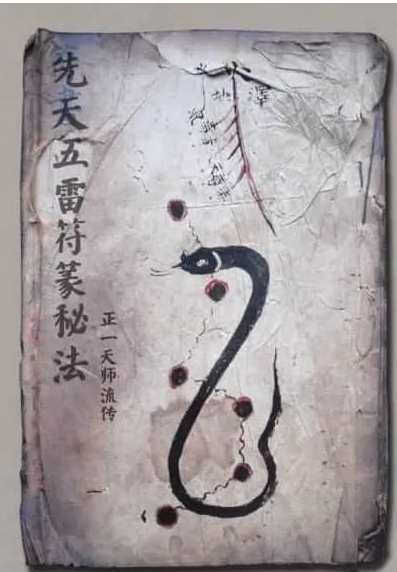 先天五雷符篆秘法
正一天师流传
一